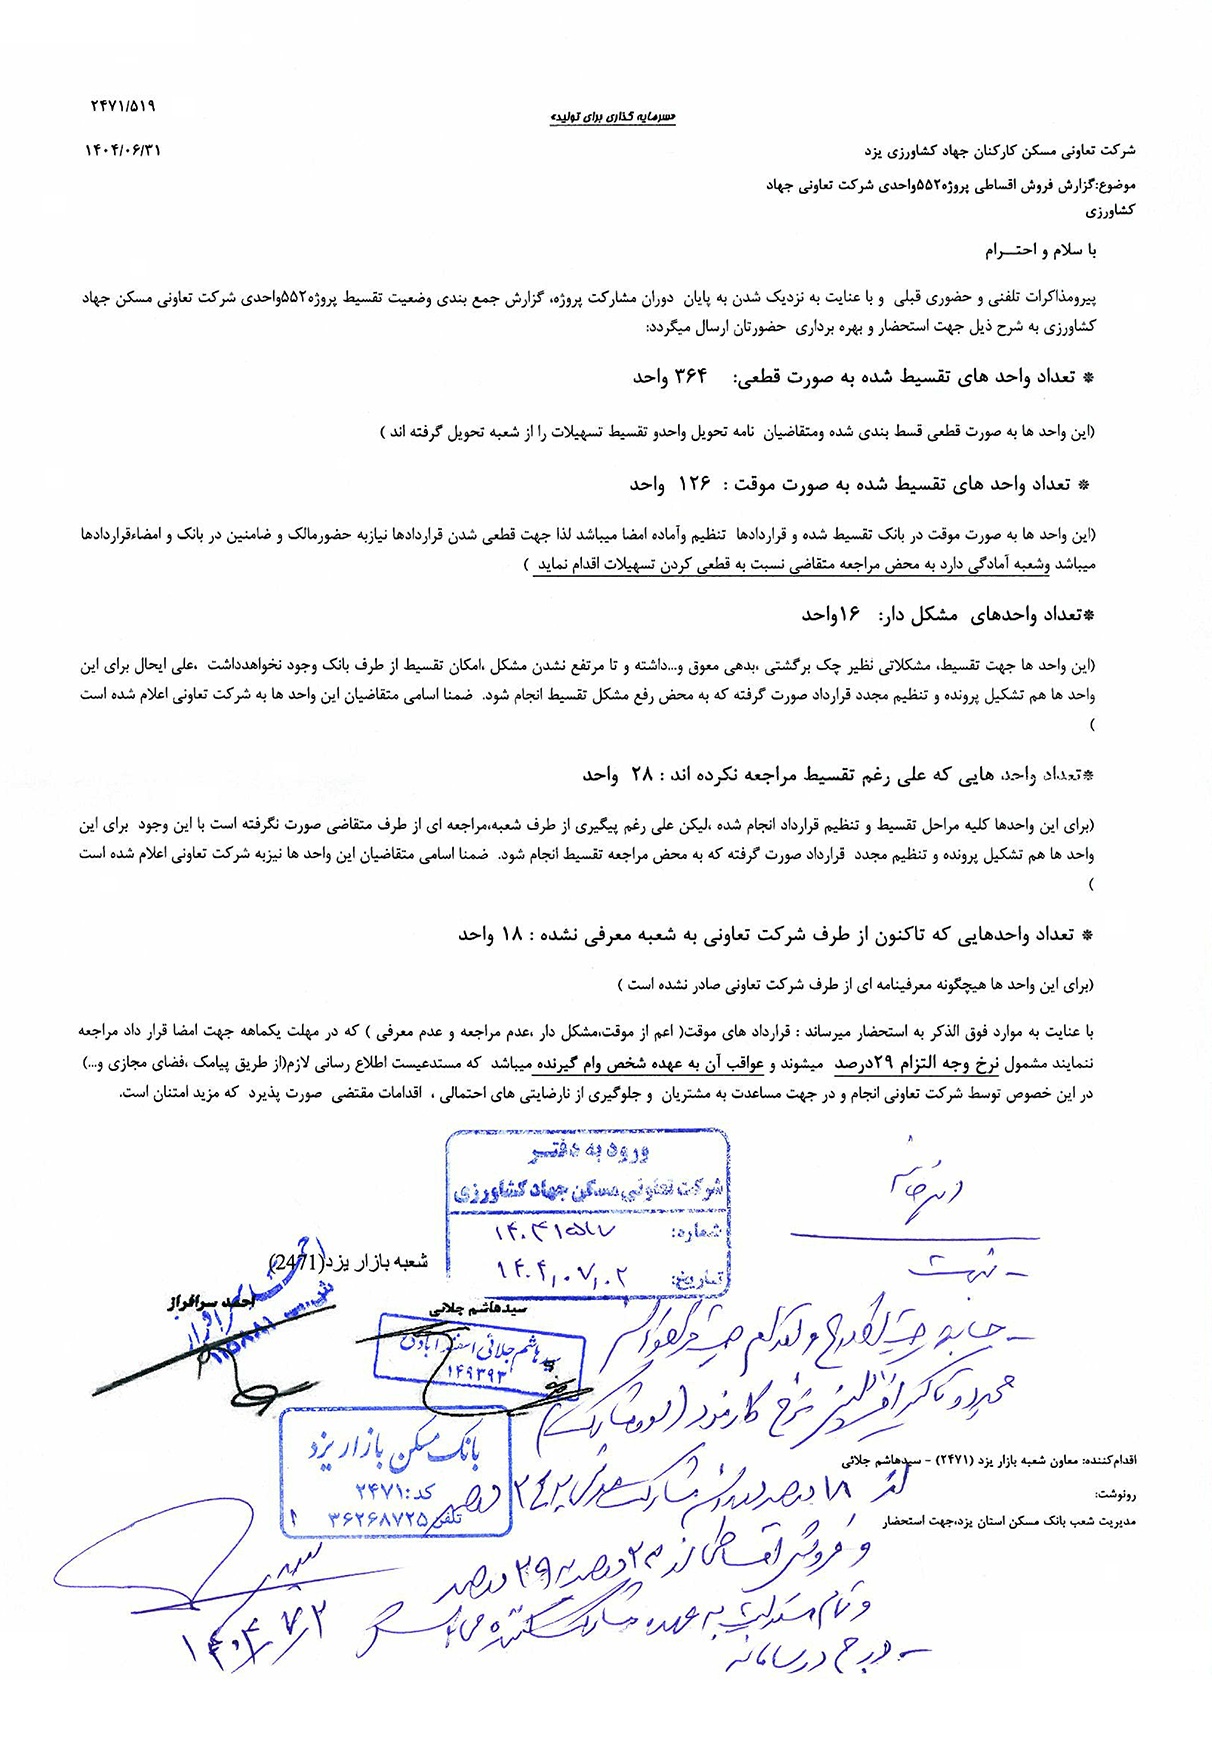 ۲۴۷۱/۵۱۹
«سرمایه گذاری برای تولید»
۱۴۰۴/۰۶/۳۱
شرکت تعاونی مسکن کارکنان جهاد کشاورزی یزد
موضوع:گزارش فروش اقساطی پروژه۵۵۲واحدی شرکت تعاونی جهاد
کشاورزی
با سلام و احترام
پیرومذاکرات تلفنی و حضوری قبلی و با عنایت به نزدیک شدن به پایان دوران مشارکت پروژه، گزارش جمع بندی وضعیت تقسیط پروژه۵۵۲واحدی شرکت تعاونی مسکن جهاد
کشاورزی به شرح ذیل جهت استحضار و بهره برداری حضورتان ارسال میگردد:
* تعداد واحد های تقسیط شده به صورت قطعی: ۳۶۴ واحد
(این واحد ها به صورت قطعی قسط بندی شده ومتقاضیان نامه تحویل واحدو تقسیط تسهیلات را از شعبه تحویل گرفته اند )
* تعداد واحد های تقسیط شده به صورت موقت : ۱۲۶ واحد
(این واحد ها به صورت موقت در بانک تقسیط شده و قراردادها تنظیم وآماده امضا میباشد لذا جهت قطعی شدن قراردادها نیازبه حضورمالک و ضامنین در بانک و امضاءقراردادها
میباشد وشعبه آمادگی دارد به محض مراجعه متقاضی نسبت به قطعی کردن تسهیلات اقدام نماید )
*تعداد واحدهای مشکل دار: ۱۶واحد
(این واحد ها جهت تقسیط، مشکلاتی نظیر چک برگشتی ،بدهی معوق و...داشته و تا مرتفع نشدن مشکل ،امکان تقسیط از طرف بانک وجود نخواهدداشت ،علی ایحال برای این
واحد ها هم تشکیل پرونده و تنظیم مجدد قرارداد صورت گرفته که به محض رفع مشکل تقسیط انجام شود. ضمنا اسامی متقاضیان این واحد ها به شرکت تعاونی اعلام شده است
)
*تعداد واحد هایی که علی رغم تقسیط مراجعه نکرده اند : ۲۸ واحد
(برای این واحدها کلیه مراحل تقسیط و تنظیم قرارداد انجام شده ،لیکن علی رغم پیگیری از طرف شعبه،مراجعه ای از طرف متقاضی صورت نگرفته است با این وجود برای این
واحد ها هم تشکیل پرونده و تنظیم مجدد قرارداد صورت گرفته که به محض مراجعه تقسیط انجام شود. ضمنا اسامی متقاضیان این واحد ها نیزبه شرکت تعاونی اعلام شده است
)
* تعداد واحدهایی که تاکنون از طرف شرکت تعاونی به شعبه معرفی نشده : ۱۸ واحد
(برای این واحد ها هیچگونه معرفینامه ای از طرف شرکت تعاونی صادر نشده است )
با عنایت به موارد فوق الذکر به استحضار میرساند : قرارداد های موقت( اعم از موقت،مشکل دار ،عدم مراجعه و عدم معرفی ) که در مهلت یکماهه جهت امضا قرار داد مراجعه
ننمایند مشمول نرخ وجه التزام ۲۹درصد میشوند و عواقب آن به عهده شخص وام گیرنده میباشد که مستدعیست اطلاع رسانی لازم(از طریق پیامک ،فضای مجازی و...)
در این خصوص توسط شرکت تعاونی انجام و در جهت مساعدت به مشتریان و جلوگیری از نارضایتی های احتمالی ، اقدامات مقتضی صورت پذیرد که مزید امتنان است.
ورود به دفتر
شرکت تعاونی مسکن جهاد کشاورزی
شماره:
تاریخ: ۱۴۰۴,۰۷,۰۲
دبیرخانه
- ثبت
شعبه بازار یزد(2471)
احمد سرافراز
سیدهاشم جلائی
سیدهاشم جلائی اسفندآبادی
۱۴۹۳۹۳
بانک مسکن بازار یزد
کد:۲۴۷۱
تلفن ۳۶۲۶۸۷۲۵
اقدام‌کننده: معاون شعبه بازار یزد (۲۴۷۱) - سیدهاشم جلائی
رونوشت:
مدیریت شعب بانک مسکن استان یزد،جهت استحضار
و فروش اقساطی از ۲۳ درصد به ۲۹ درصد
- درج در سامانه
۱۴۰۴/۷/۲